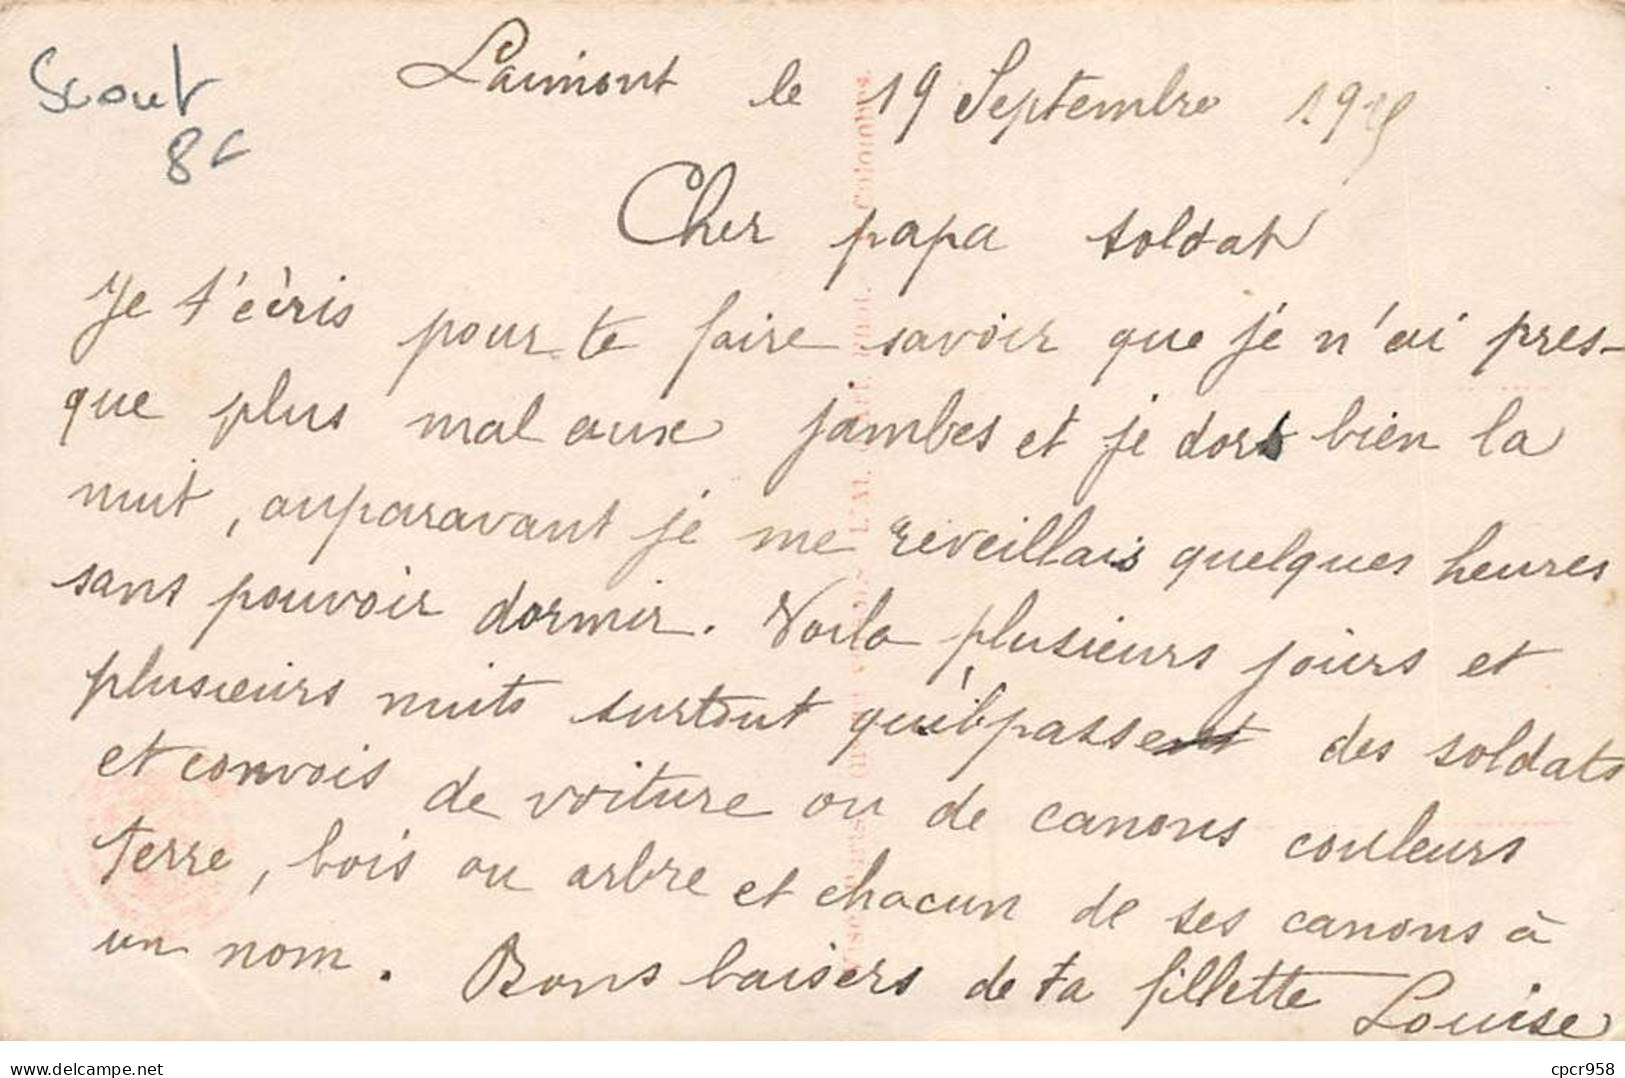 Scout
8€
Laimont le 19 Septembre 1915
Cher papa soldat
Je t'écris pour te faire savoir que je n'ai pres-
que plus mal aux jambes et je dors bien la
nuit, auparavant je me réveillais quelques heures
sans pouvoir dormir. Voila plusieurs jours et
plusieurs nuits surtout qu'il passe des soldats
et convois de voiture ou de canons couleurs
terre, bois ou arbre et chacun de ses canons à
un nom. Bons baisers de ta fillette Louise
delcampe.net
cpcr958